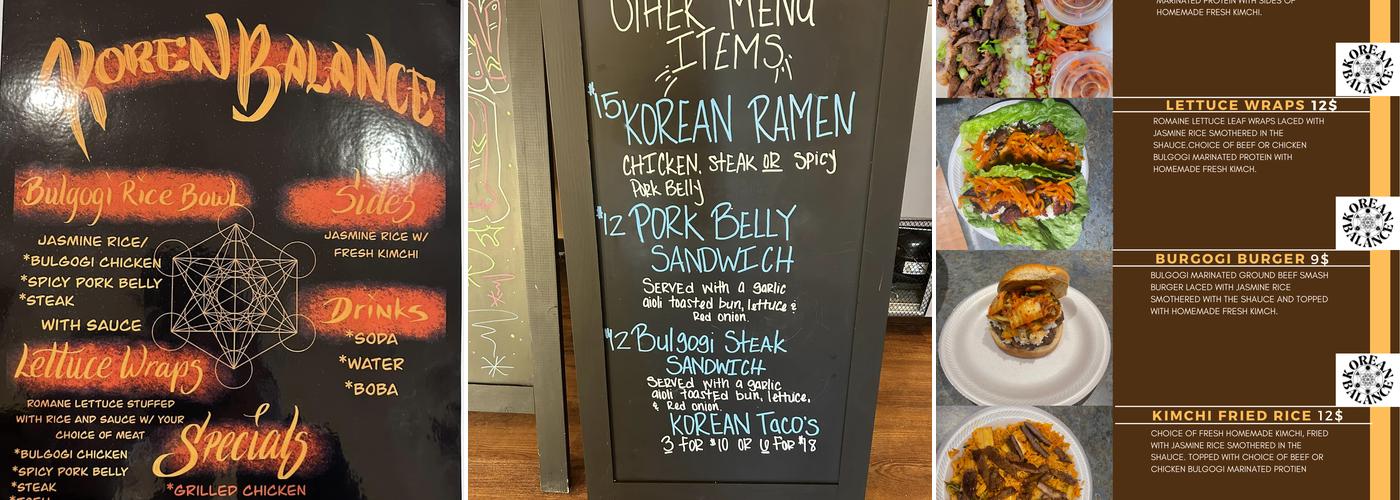 KOREN BALANCE
Bulgogi Rice Bowl
JASMINE RICE/
*BULGOGI CHICKEN
*SPICY PORK BELLY
*STEAK
WITH SAUCE
Lettuce Wraps
ROMANE LETTUCE STUFFED
WITH RICE AND SAUCE W/ YOUR
CHOICE OF MEAT
*BULGOGI CHICKEN
*SPICY PORK BELLY
*STEAK
Sides
JASMINE RICE W/
FRESH KIMCHI
Drinks
*SODA
*WATER
*BOBA
Specials
*GRILLED CHICKEN
OTHER MENU
ITEMS
$15 KOREAN RAMEN
CHICKEN, STEAK OR SPICY
PORK BELLY
$12 PORK BELLY
SANDWICH
SERVED with a garlic
aioli toasted bun, lettuce &
Red onion.
$12 Bulgogi STEAK
SANDWICH
SERVED with a garlic
aioli toasted bun, lettuce,
& Red onion.
KOREAN Taco's
3 FOR $10 OR 6 FOR $18
MARINATED PROTEIN WITH SIDES OF
HOMEMADE FRESH KIMCHI.
KOREAN BALANCE
LETTUCE WRAPS 12$
ROMAINE LETTUCE LEAF WRAPS LACED WITH
JASMINE RICE SMOTHERED IN THE
SHAUCE.CHOICE OF BEEF OR CHICKEN
BULGOGI MARINATED PROTEIN WITH
HOMEMADE FRESH KIMCH.
KOREAN BALANCE
BURGOGI BURGER 9$
BULGOGI MARINATED GROUND BEEF SMASH
BURGER LACED WITH JASMINE RICE
SMOTHERED WITH THE SHAUCE AND TOPPED
WITH HOMEMADE FRESH KIMCH.
KOREAN BALANCE
KIMCHI FRIED RICE 12$
CHOICE OF FRESH HOMEMADE KIMCHI, FRIED
WITH JASMINE RICE SMOTHERED IN THE
SHAUCE. TOPPED WITH CHOICE OF BEEF OR
CHICKEN BULGOGI MARINATED PROTIEN